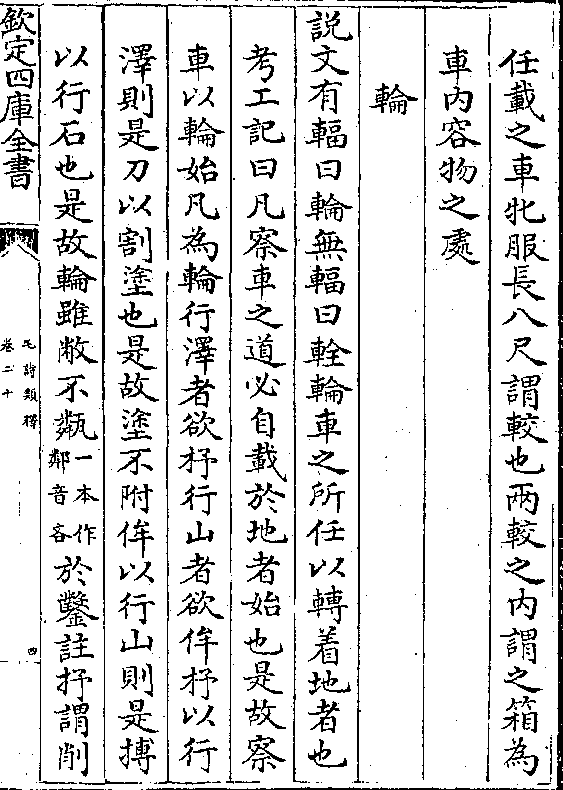 任載之車牝服長八尺謂較也兩較之内謂之箱為
車内容物之處
輪
説文有輻曰輪無輻曰輇輪車之所任以轉着地者也
考工記曰凡察車之道必自載於地者始也是故察
車以輪始凡為輪行澤者欲杼行山者欲侔杼以行
澤則是刀以割塗也是故塗不附侔以行山則是摶
以行石也是故輪雖敝不甐一本作鄰音吝於鑿註抒謂削
欽定四庫全書
毛詩類釋
卷二十
四